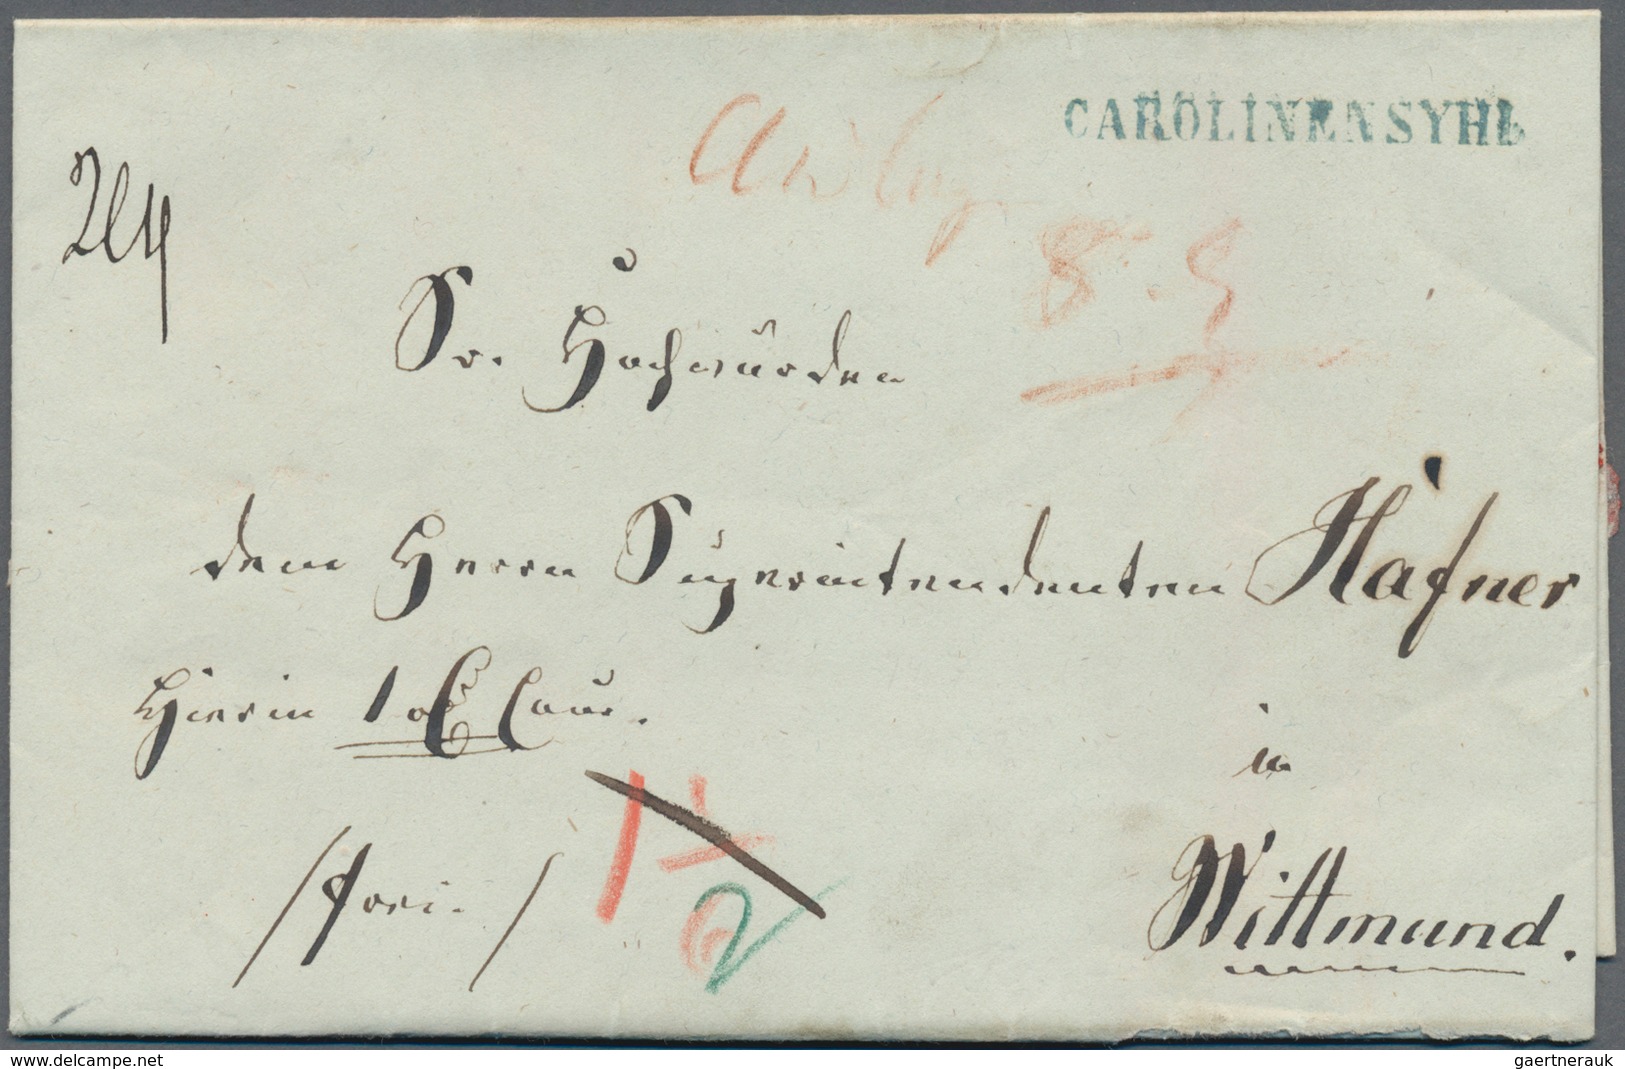 CAROLINENSYHL
Sr. Hochwürden
dem Herrn Superintendenten Häfner
Hierin 1 Cour.
in
/frei./ 1 1/2
2
Wittmund.
www.delcampe.net
gaertnerauk